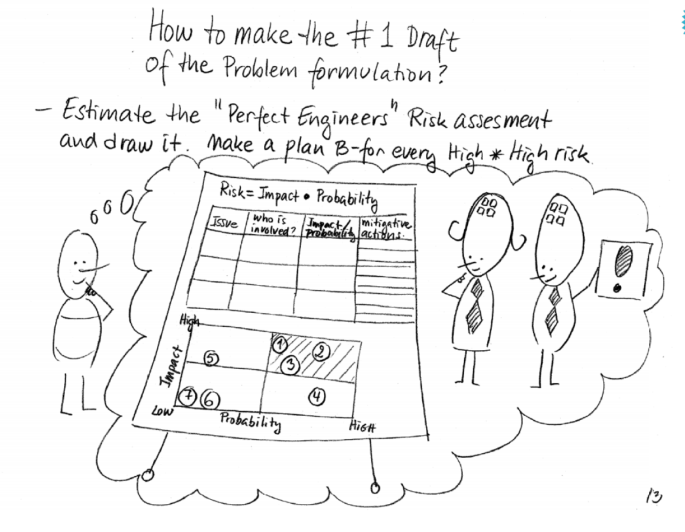 How to make the #1 Draft
of the Problem formulation?
- Estimate the "Perfect Engineers" Risk assesment
and draw it. Make a plan B-for every High * High risk.
Risk = Impact • Probability
Issue
who is
involved?
Impact/
probability
mitigative
actions.
High
Impact
Low
① ② ③
⑤
⑦ ⑥ ④
Probability
HIGH
!
13